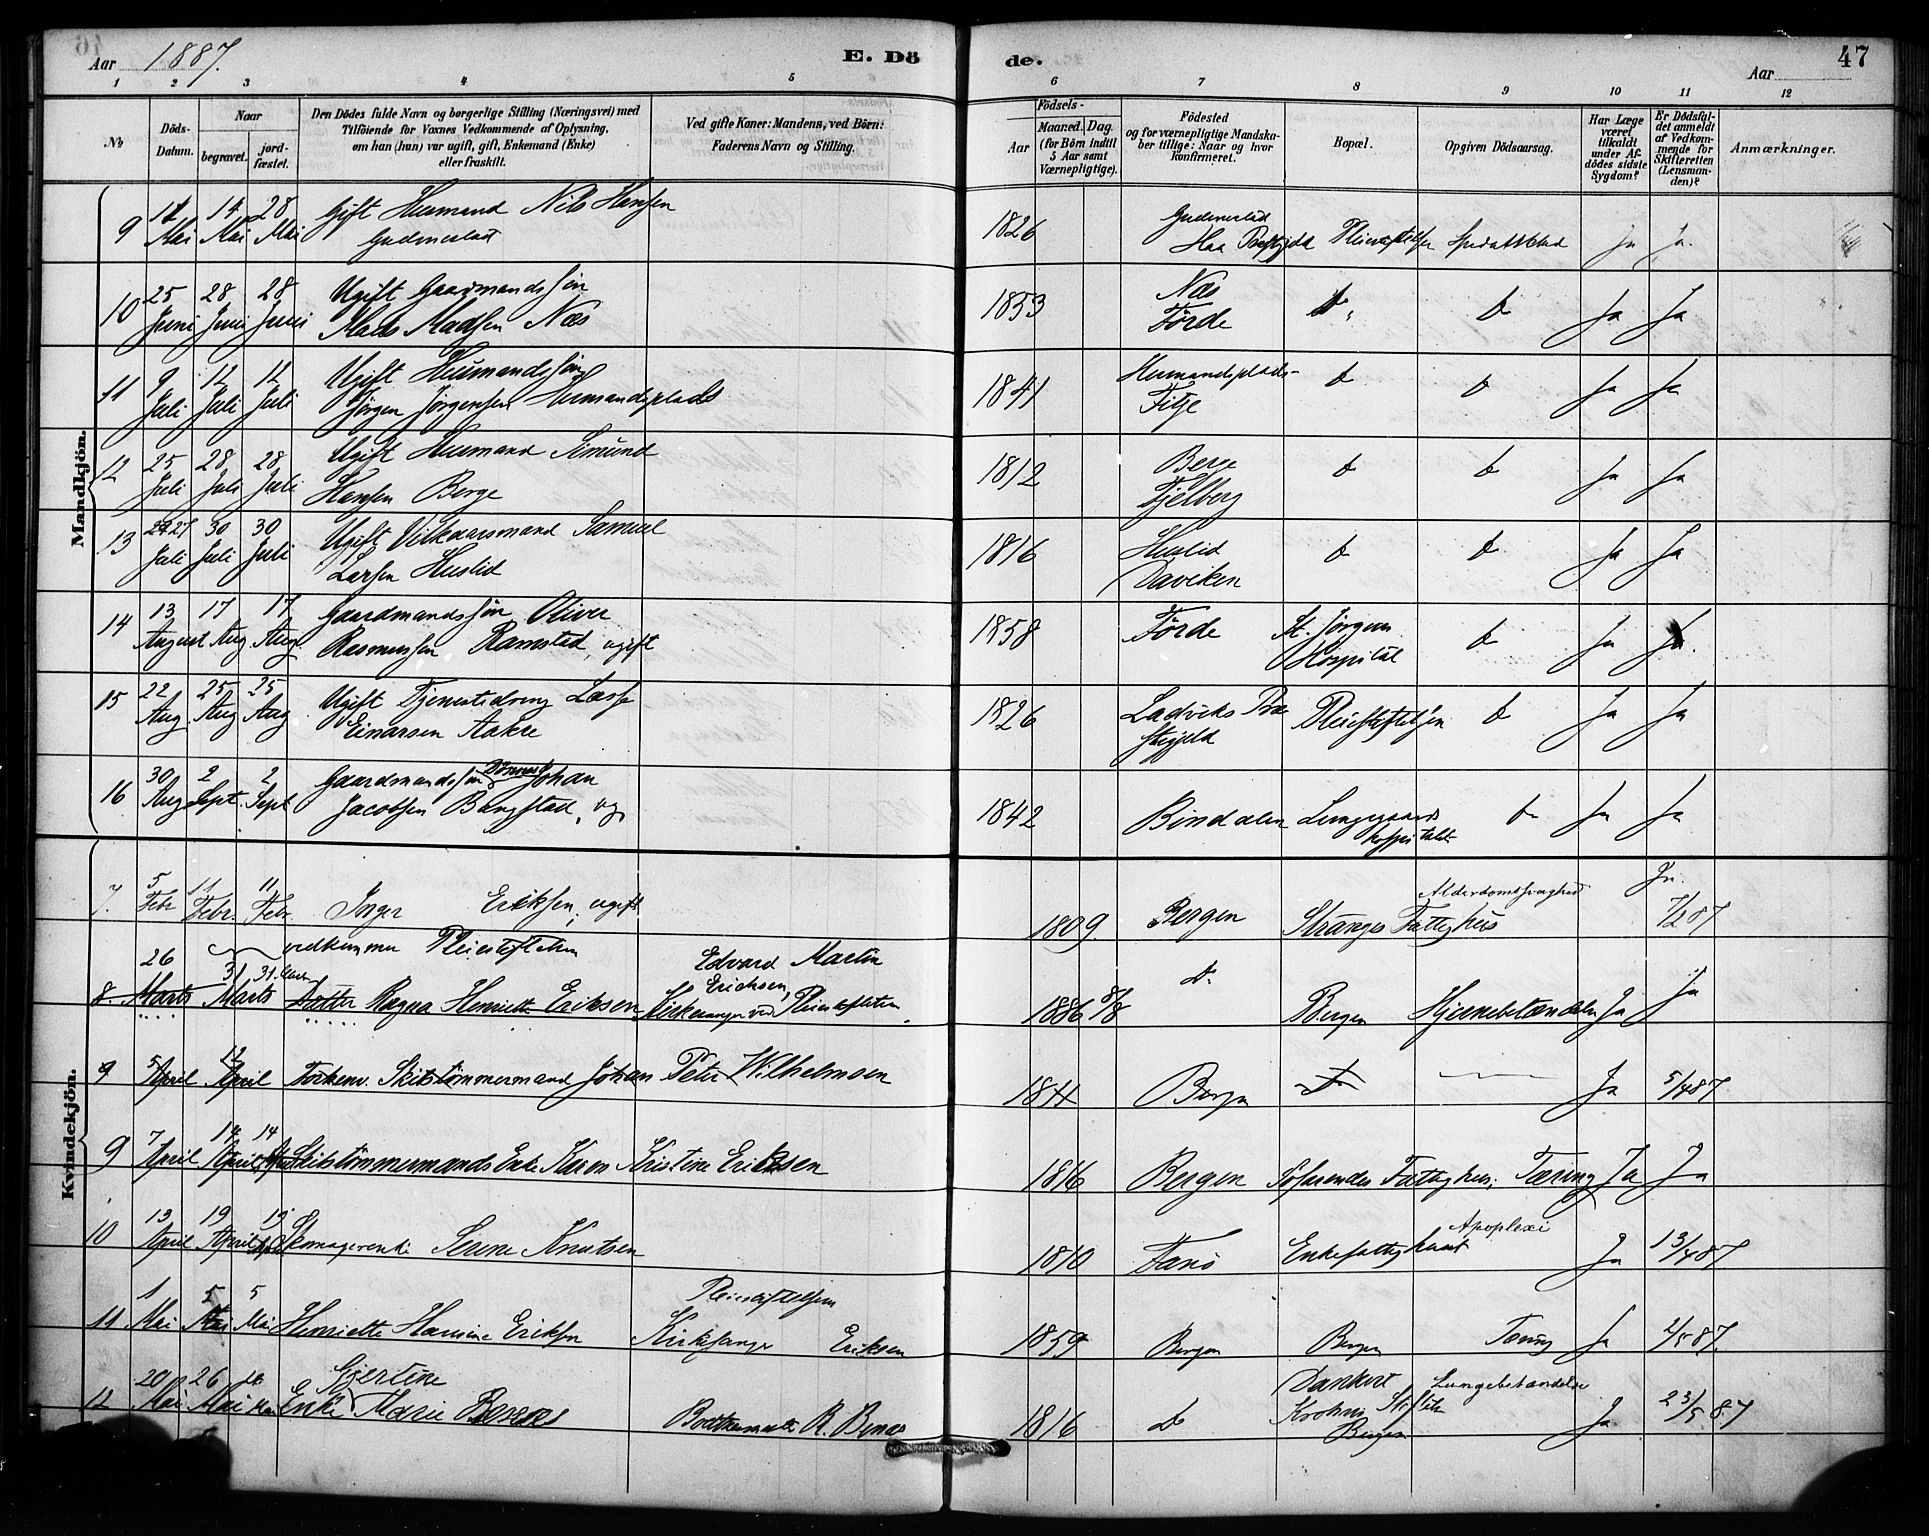 Aar 1887.
E. Dö
de.
47
Aar
1 2 3 4 5
6 7 8 9 10 11 12
No
Döds-
Datum.
Naar
begravet.
jord-
fæstet.
Den Dödes fulde Navn og borgerlige Stilling (Næringsvei) med
Tilföiende for Voxnes Vedkommende af Oplysning,
om han (hun) var ugift, gift, Enkemand (Enke)
eller fraskilt.
Ved gifte Koner: Mandens, ved Börn:
Faderens Navn og Stilling.
Födsels-
Aar
Maaned. Dag.
(for Börn indtil
5 Aar samt
Værnepligtige).
Födested
og for værnepligtige Mandska-
ber tillige: Naar og hvor
konfirmeret.
Bopæl.
Opgiven Dödsaarsag.
Har Læge
været
tilkaldt
under Af-
dödes sidste
Sygdom?
Er Dödsfal-
det anmeldt
af Vedkom-
mende for
Skifteretten
(Lensman-
den)?
Anmærkninger.
Mandkjön.
9 11 Mai 14 Mai 28 Mai Gift Husmand Nils Hansen
Gudmestad
1826 Gudmestad
Haa Præstgjeld Pleiestiftelsen Spedalskhed Ja Ja.
10 25 Juni 28 Juni 28 Juni Ugift Gaardmandssøn
Mads Madsen Næs
1853 Næs
Förde Do. Do Ja Ja
11 9 Juli 12 Juli 12 Juli Ugift Husmandssøn
Jørgen Jørgensen Husmandsplads
1841 Husmandsplads-
Fitje Do Do Ja Ja
12 25 Juli 28 Juli 28 Juli Ugift Husmand Simund
Hansen Berge
1812 Berge
Fjelberg Do Do Ja Ja
13 27 Juli 30 Juli 30 Juli Ugift Vilkaarsmand Samuel
Larsen Huslid
1816 Huslid
Daviken Do Do Ja Ja
14 13 August 17 Aug 17 Aug. Gaardmandssøn Oliver
Rasmussen Ramstad, ugift
1858 Förde St. Jørgens
Hospital Do Ja Ja.
15 22 Aug 25 Aug 25 Aug Ugift Tjenestedreng Lasse
Einarsen Aakre
1826 Ladviks Præ
stegjeld Pleiestiftelsen Do Ja Ja
16 30 Aug 2 Sept. 2 Sept Gaardmandssøn Johan
Jacobsen Bangstad, ug.
1842 Bindalen Lungegaards
hospitalet Do Ja Ja
Kvindekjön.
7. 5 Febr 11 Febr. 11 Febr. Inger Eriksen, ugift
1809. Bergen Stranges Fattighus Alderdomssvaghed Ja. 7/2 87.
vedkommer Pleiestiftelsen
8. 26 Marts 31 Marts 31. Marts Datter Ragna Henriette Eriksen Edvard Martin
Erichsen,
Kirkesanger ved Pleiestiftelsen.
1886 8/8 Do. Bergen Hjernebetændelse Ja Ja
9 5 April 12 April Forhenv. Skibstömmermand Johan Peter Wilhelmsen
1811 Bergen Ja 5/4 87.
9 7 April 14 April 14 Skibstömmermands Enke Karen Kristine Eriksen
1816 Bergen Söfarendes Fattighus; Tæring Ja Ja
10 13 April 19 April 19 Skomagerenke Serine Knutsen
1810 Fanö Enkefattighuset Apoplexi Ja 13/4 87.
11 1 Mai 5 Mai 5 Mai Henriette Hansine Eriksen Pleiestiftelsen
Kirkesanger Eriksen
1859 Bergen Bergen Tæring Ja 2/5 87.
12 20 Mai 26 Mai Gjertine
Enke Marie
1816 Do Dankert
Krohns Stiftelse
Bergen Lungebetændelse Ja 23/5 87